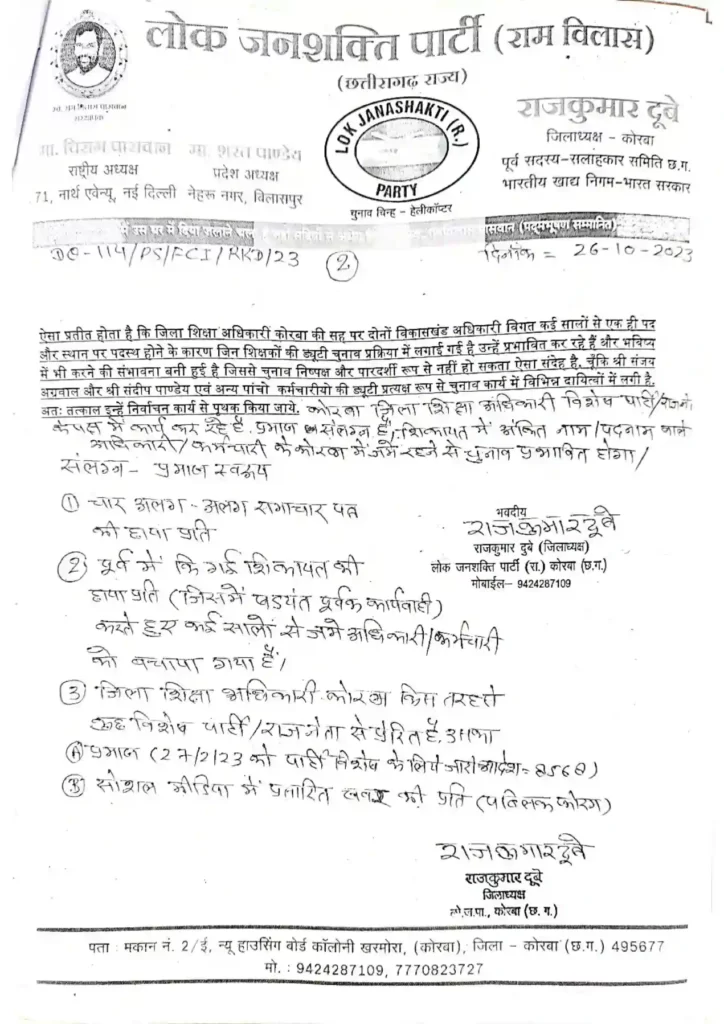 लोक जनशक्ति पार्टी (राम विलास)
(छत्तीसगढ़ राज्य)
LOK JANASHAKTI (R.)
PARTY
चुनाव चिन्ह - हेलीकॉप्टर
मा. चिराग पासवान
राष्ट्रीय अध्यक्ष
71, नार्थ एवेन्यू, नई दिल्ली
मा. शरत पाण्डेय
प्रदेश अध्यक्ष
नेहरू नगर, बिलासपुर
राजकुमार दूबे
जिलाध्यक्ष - कोरबा
पूर्व सदस्य-सलाहकार समिति छ.ग.
भारतीय खाद्य निगम-भारत सरकार
उस घर में दिया जलाने (पद्मभूषण सम्मानित)
DO-114/PS/FCI/RKD/23
(2)
दिनाँक = 26-10-2023
ऐसा प्रतीत होता है कि जिला शिक्षा अधिकारी कोरबा की सह पर दोनों विकासखंड अधिकारी विगत कई सालों से एक ही पद
और स्थान पर पदस्थ होने के कारण जिन शिक्षकों की ड्युटी चुनाव प्रक्रिया में लगाई गई है उन्हें प्रभावित कर रहे हैं और भविष्य
में भी करने की संभावना बनी हुई है जिससे चुनाव निष्पक्ष और पारदर्शी रूप से नहीं हो सकता ऐसा संदेह है. चूँकि श्री संजय
अग्रवाल और श्री संदीप पाण्डेय एवं अन्य पांचो कर्मचारीयो की ड्युटी प्रत्यक्ष रूप से चुनाव कार्य में विभिन्न दायित्वों में लगी है.
अतः तत्काल इन्हें निर्वाचन कार्य से पृथक किया जाये. कोरबा जिला शिक्षा अधिकारी विशेष पार्टी/
के पक्ष में कार्य कर रहे है. प्रमाण संलग्न है, शिकायत में अंकित नाम/पदनाम वाले
अधिकारी/कर्मचारी के कोरबा में जमे रहने से चुनाव प्रभावित होगा/
संलग्न - प्रमाण स्वरूप
(1) चार अलग - अलग समाचार पत्र
की छाया प्रति
भवदीय
राजकुमार दूबे
राजकुमार दुबे (जिलाध्यक्ष)
लोक जनशक्ति पार्टी (रा.) कोरबा (छ.ग.)
मोबाईल- 9424287109
(2) पूर्व में कि गई शिकायत की
छाया प्रति (जिसमें षडयंत्र पूर्वक कार्यवाही)
करते हुए कई सालों से जमे अधिकारी/कर्मचारी
को बचाया गया है।
(3) जिला शिक्षा अधिकारी कोरबा किस तरह से
विशेष पार्टी/राजनेता से प्रेरित है. उसका
(A) प्रमाण (27/2/23 को पार्टी विशेष के लिये जारी आदेश = 8568)
(B) सोशल मीडिया में प्रसारित खबर की प्रति (पब्लिक फोरम)
राजकुमार दूबे
राजकुमार दूबे
जिलाध्यक्ष
लो.ज.पा., कोरबा (छ. ग.)
पता : मकान नं. 2/ई, न्यू हाउसिंग बोर्ड कॉलोनी खरमोरा, (कोरबा), जिला - कोरबा (छ.ग.) 495677
मो. : 9424287109, 7770823727